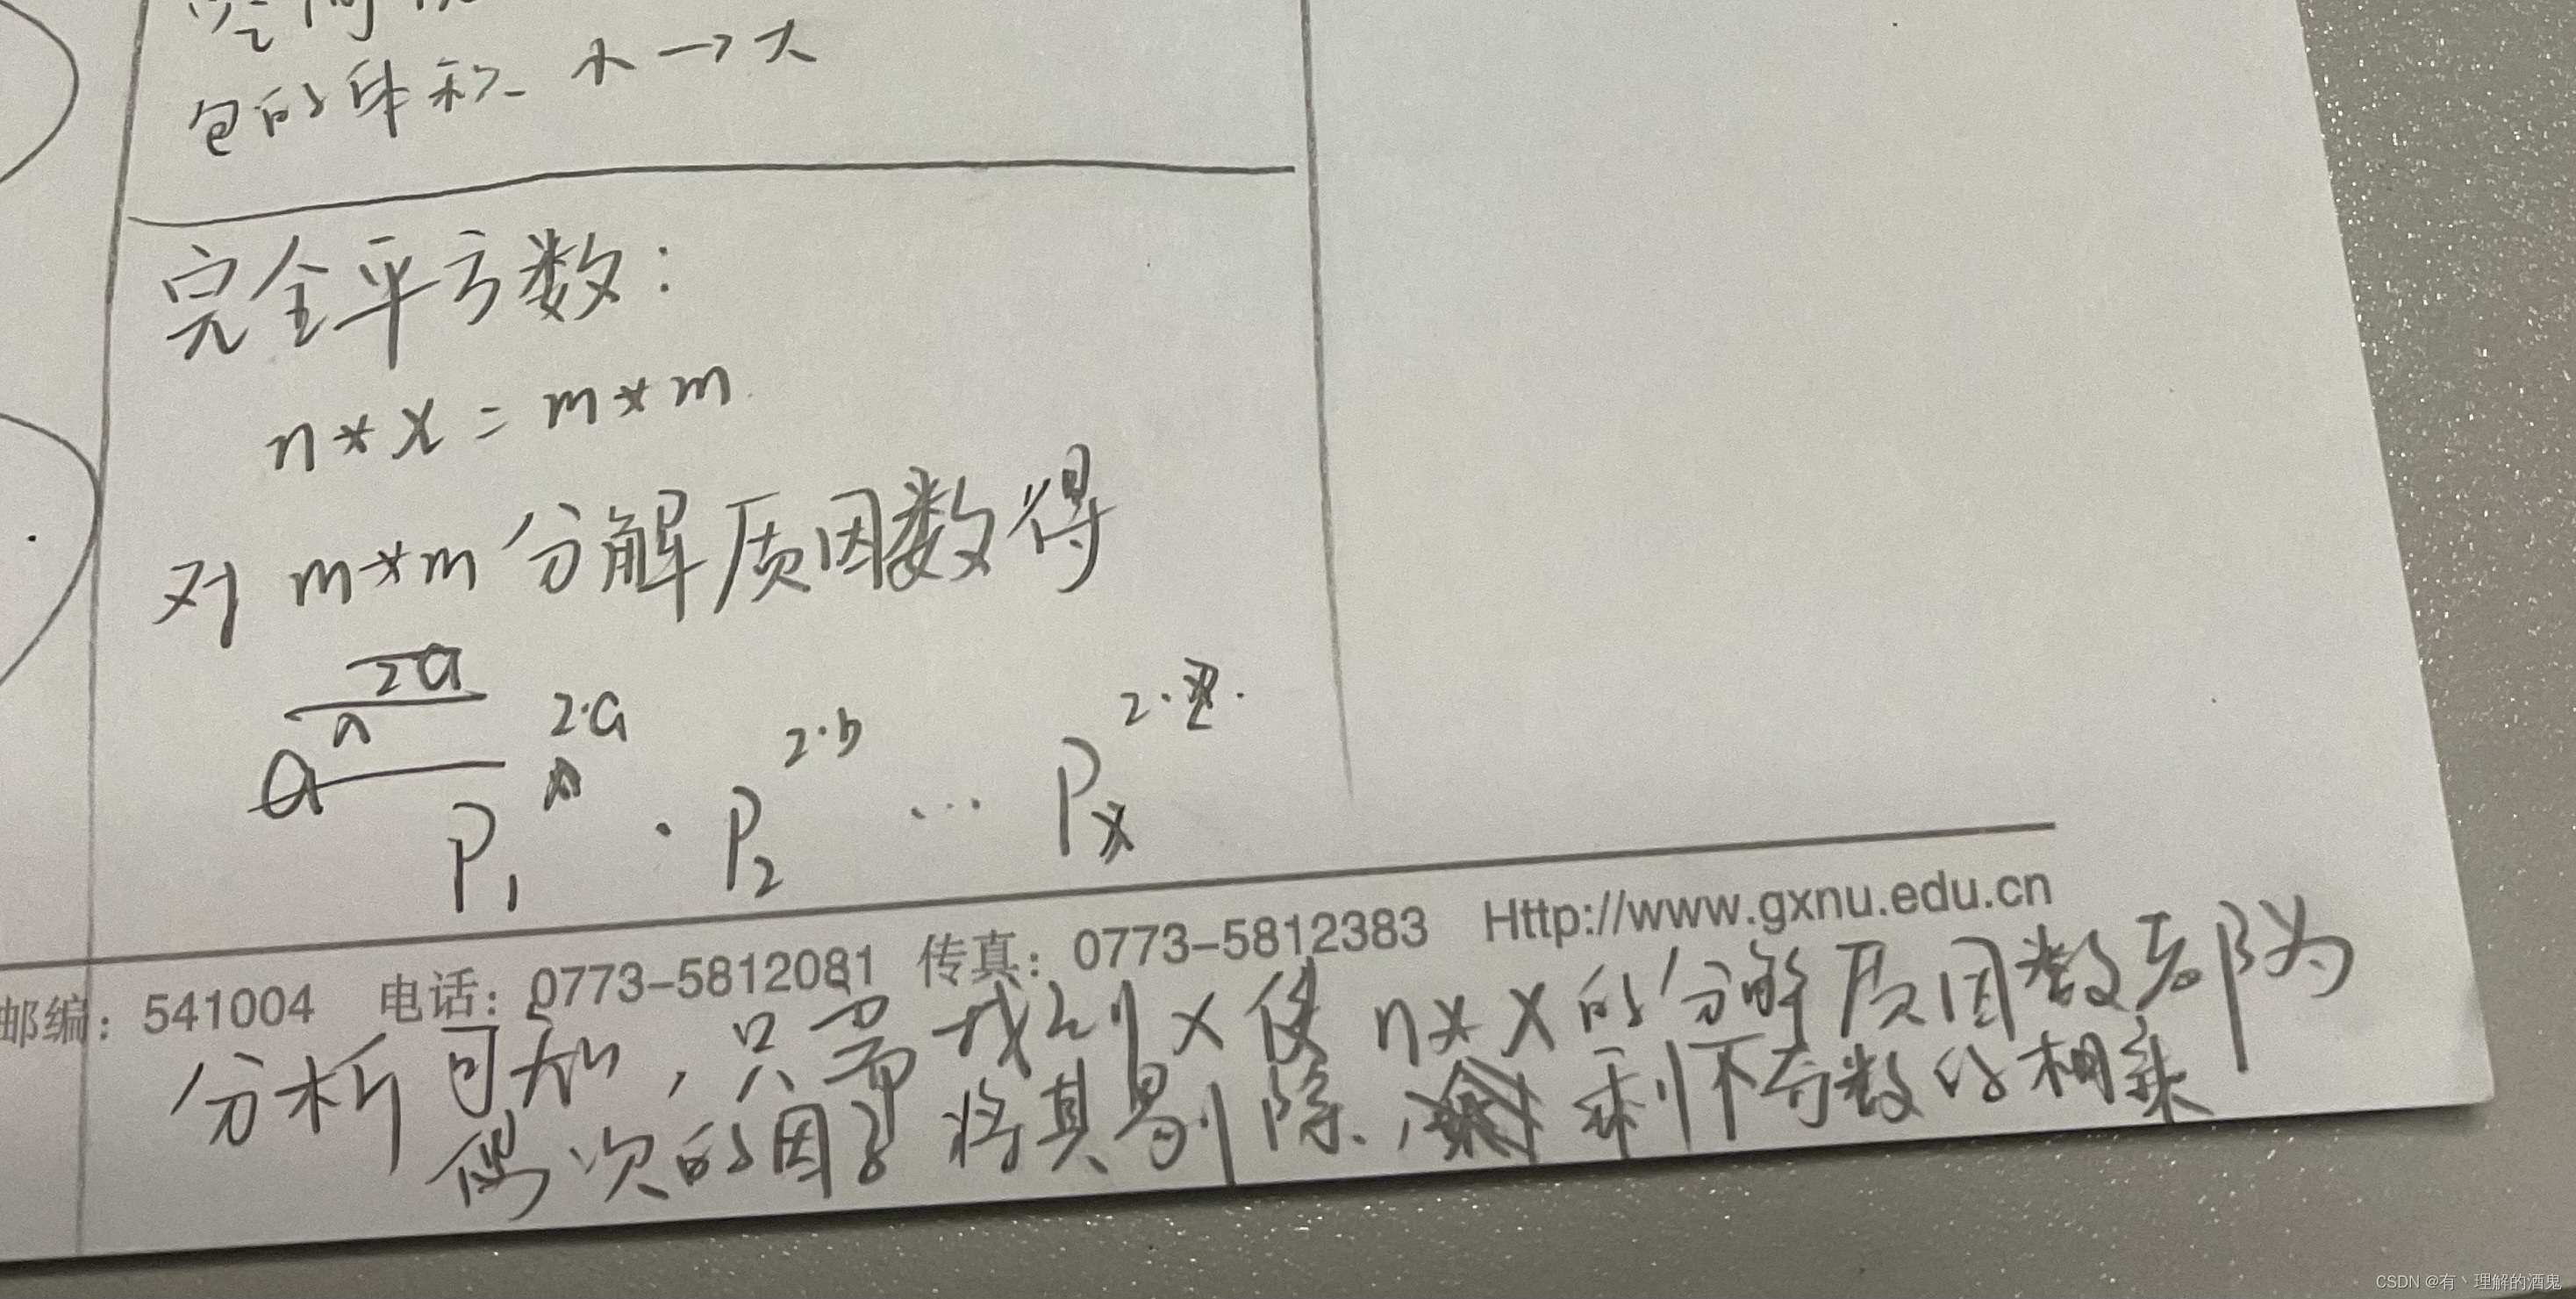 空间
包的体积 小→大
完全平方数：
n*x=m*m
对m*m分解质因数得
P₁^2·a · P₂^2·b … Pₓ^2·z
邮编：541004 电话：0773-5812081 传真：0773-5812383 Http://www.gxnu.edu.cn
分析可知，只需找到x使n*x的分解质因数后都为
偶次的因子将其剔除，剩下奇数的相乘
CSDN @有丶理解的酒鬼